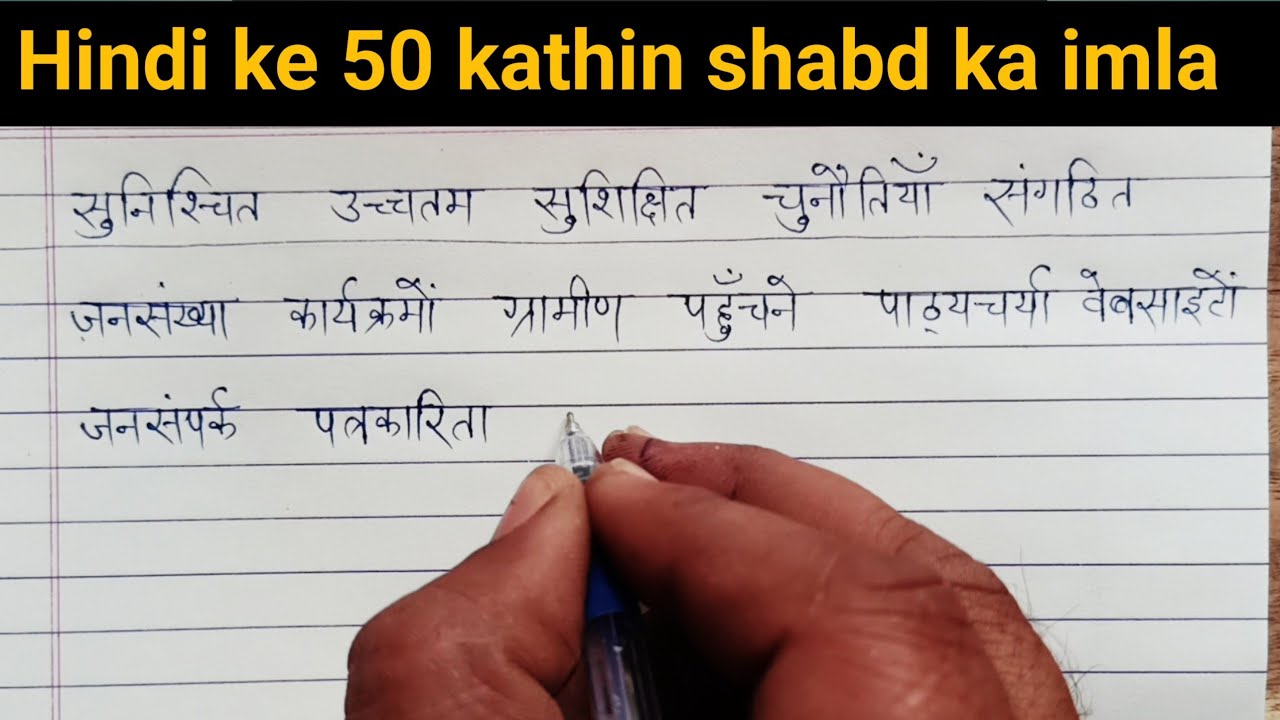 Hindi ke 50 kathin shabd ka imla
सुनिश्चित उच्चतम सुशिक्षित चुनौतियाँ संगठित
ज़नसंख्या कार्यक्रमों ग्रामीण पहुँचने पाठ्यचर्या वेबसाइटों
जनसंपर्क पत्रकारिता